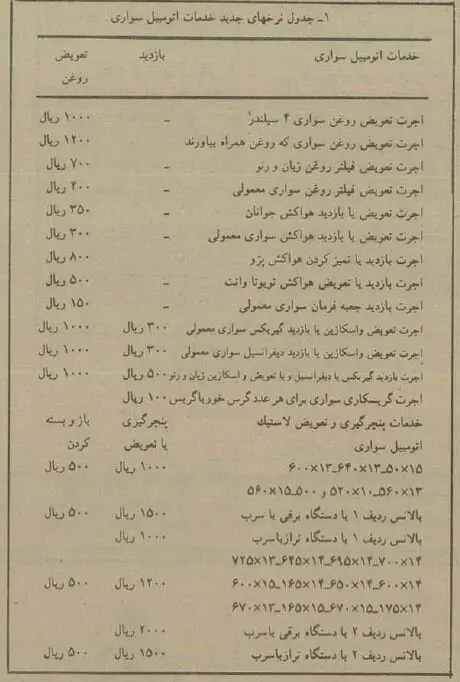 ۱ـ جدول نرخهای جدید خدمات اتومبیل سواری
خدمات اتومبیل سواری بازدید تعویض روغن
اجرت تعویض روغن سواری ۴ سیلندر ـ ۱۰۰۰ ریال
اجرت تعویض روغن سواری که روغن همراه بیاورند ۱۲۰۰ ریال
اجرت تعویض فیلتر روغن ژیان و رنو ـ ۷۰۰ ریال
اجرت تعویض فیلتر روغن سواری معمولی ـ ۴۰۰ ریال
اجرت تعویض یا بازدید هواکش جوانان ـ ۳۵۰ ریال
اجرت تعویض یا بازدید هواکش سواری معمولی ـ ۳۰۰ ریال
اجرت بازدید یا تمیز کردن هواکش پژو ۸۰۰ ریال
اجرت بازدید یا تعویض هواکش تویوتا وانت ـ ۵۰۰ ریال
اجرت بازدید جعبه فرمان سواری معمولی ـ ۱۵۰ ریال
اجرت تعویض واسکازین یا بازدید گیربکس سواری معمولی ۳۰۰ ریال ۱۰۰۰ ریال
اجرت تعویض واسکازین یا بازدید دیفرانسیل سواری معمولی ۳۰۰ ریال ۱۰۰۰ ریال
اجرت بازدید گیربکس یا دیفرانسیل و یا تعویض واسکازین ژیان و رنو ۵۰۰ ریال ۱۰۰۰ ریال
اجرت گریسکاری سواری برای هر عدد گرس خور یا گریس ۱۰۰ ریال
خدمات پنچرگیری و تعویض لاستیك پنچرگیری باز و بسته
اتومبیل سواری یا تعویض کردن
۱۵×۵۰ـ۱۳×۶۴۰ـ۱۳×۶۰۰ ۱۰۰۰ ریال ۵۰۰ ریال
۱۳×۵۶۰ـ۱۰×۵۲۰ و ۵۰۰ـ۱۵×۵۶۰
بالانس ردیف ۱ با دستگاه برقی با سرب ۱۵۰۰ ریال ۵۰۰ ریال
بالانس ردیف ۱ با دستگاه ترازباسرب ۱۰۰۰ ریال
۱۴×۷۰۰ـ۱۴×۶۹۵ـ۱۴×۶۴۵ـ۱۳×۷۲۵
۱۴×۶۰۰ـ۱۴×۶۵۰ـ۱۴×۱۶۵ـ۱۵×۶۰۰ ۱۲۰۰ ریال ۵۰۰ ریال
۱۴×۱۷۵ـ۱۵×۶۷۰ـ۱۵×۱۶۵ـ۱۳×۶۷۰
بالانس ردیف ۲ با دستگاه برقی باسرب ۲۰۰۰ ریال
بالانس ردیف ۲ با دستگاه ترازباسرب ۱۵۰۰ ریال ۵۰۰ ریال